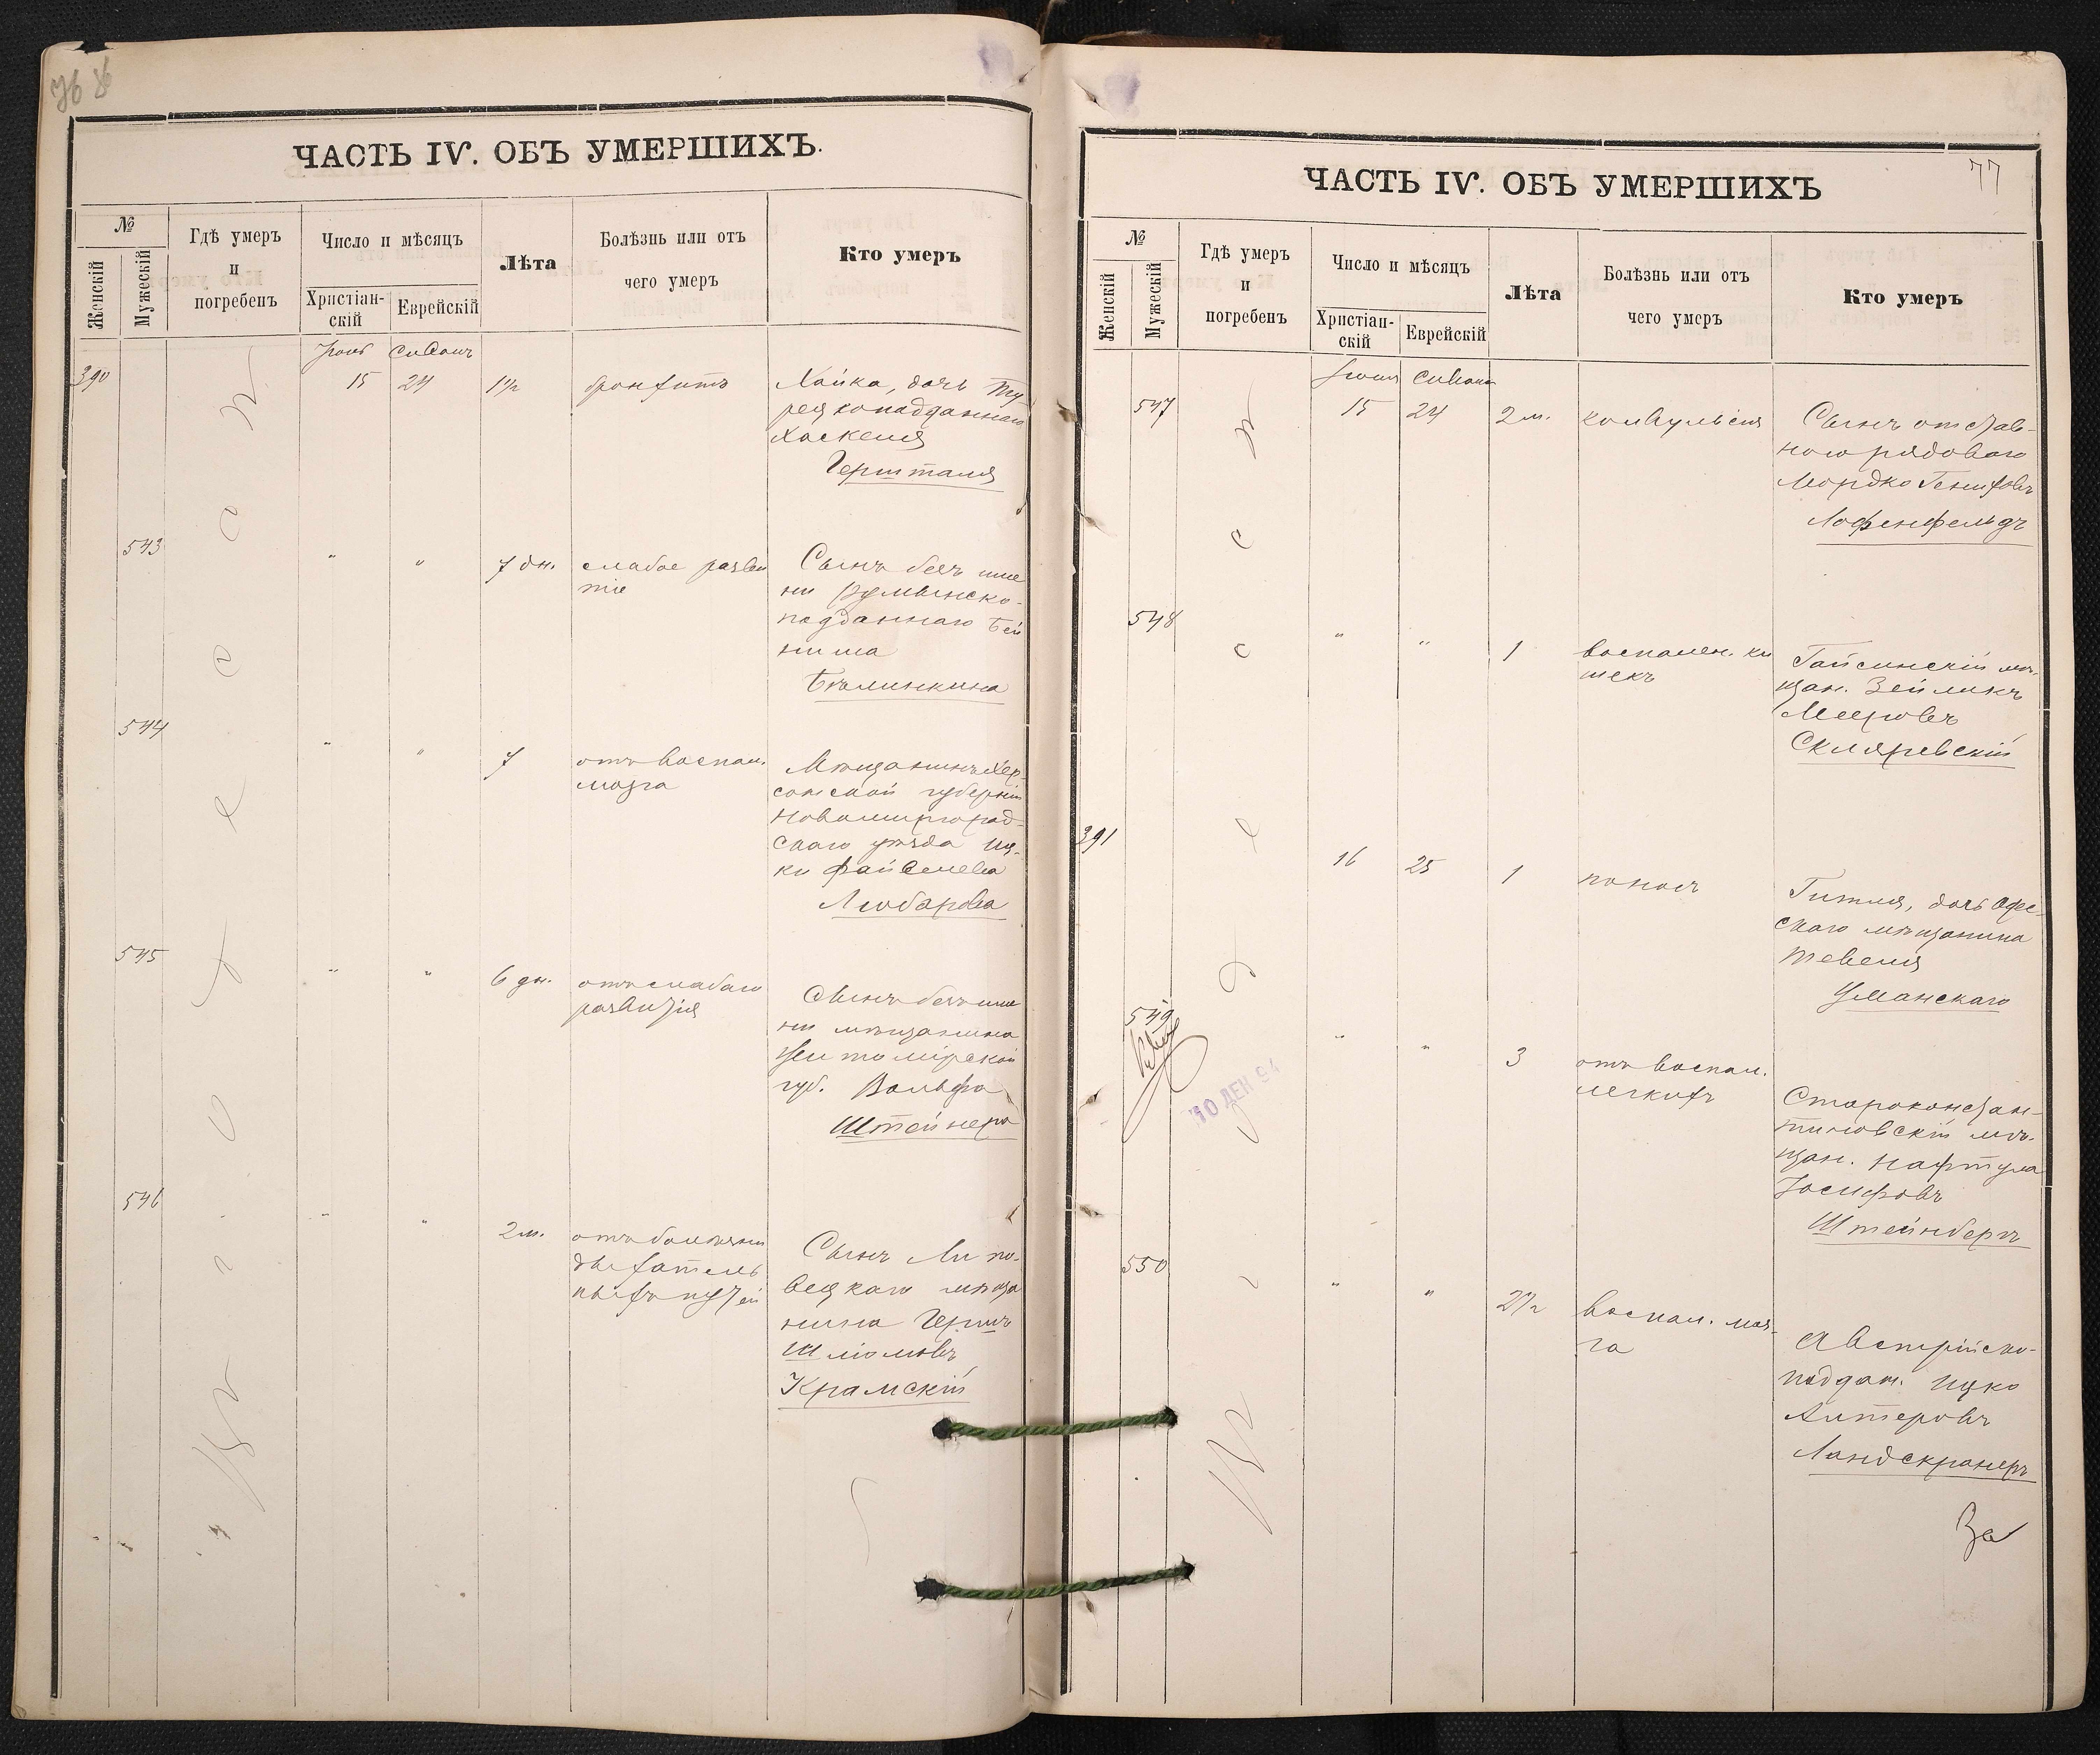 76
ЧАСТЬ IV. ОБЪ УМЕРШИХЪ.
№
Женскій
Мужескій
Гдѣ умеръ
и
погребенъ
Число и мѣсяцъ
Христіан-
скій
Еврейскій
Лѣта
Болѣзнь или отъ
чего умеръ
Кто умеръ
Въ г. Одессѣ
Іюнь Сивонъ
390
15 24 1½ бронхитъ
Хайка, дочь Ту-
рецкоподданнаго
Хаскеля
Гершталя
543
" " 7 дн. слабое разви
тіе
Сынъ безъ име
ни Румынско-
подданнаго Бей
ниша
Бѣлинкина
544
" " 7 отъ воспал.
мозга
Мѣщанинъ Хер-
сонской губерніи
Новомиргород-
скаго уѣзда Иц-
ко Файвелевъ
Любарова
545
" " 6 дн. отъ слабаго
развитія
Сынъ безъ име
ни мѣщанина
Житомірской
губ. Вольфа
Штейнера
546
" " 2 м. отъ болѣзни
дыхатель
ныхъ путей
Сынъ Липо-
вецкаго мѣща
нина Гершъ
Шліомовъ
Крамскій
77
ЧАСТЬ IV. ОБЪ УМЕРШИХЪ
№
Женскій
Мужескій
Гдѣ умеръ
и
погребенъ
Число и мѣсяцъ
Христіан-
скій
Еврейскій
Лѣта
Болѣзнь или отъ
чего умеръ
Кто умеръ
Въ г. Одессѣ
Іюня Сивона
547
15 24 2 м. конвульсія
Сынъ отстав-
ного рядоваго
Мордко
Лофенфельдъ
548
" " 1 воспален. ки
шекъ
Гайсинскій мѣ-
щан. Зейликъ
Мееровъ
Скляревскій
391
16 25 1 поносъ
Гитля, дочь Одес-
скаго мѣщанина
Тевеля
Уманскаго
549
10 ДЕК 94
" " 3 отъ воспал.
легкихъ
Староконстан-
тиновскій мѣ-
щан. Нафтула
Іосифовъ
Штейнбергъ
550
" " 2½ воспал. моз-
га
Австрійско-
поддан. Ицко
Алтеровъ
Ландскронеръ
За